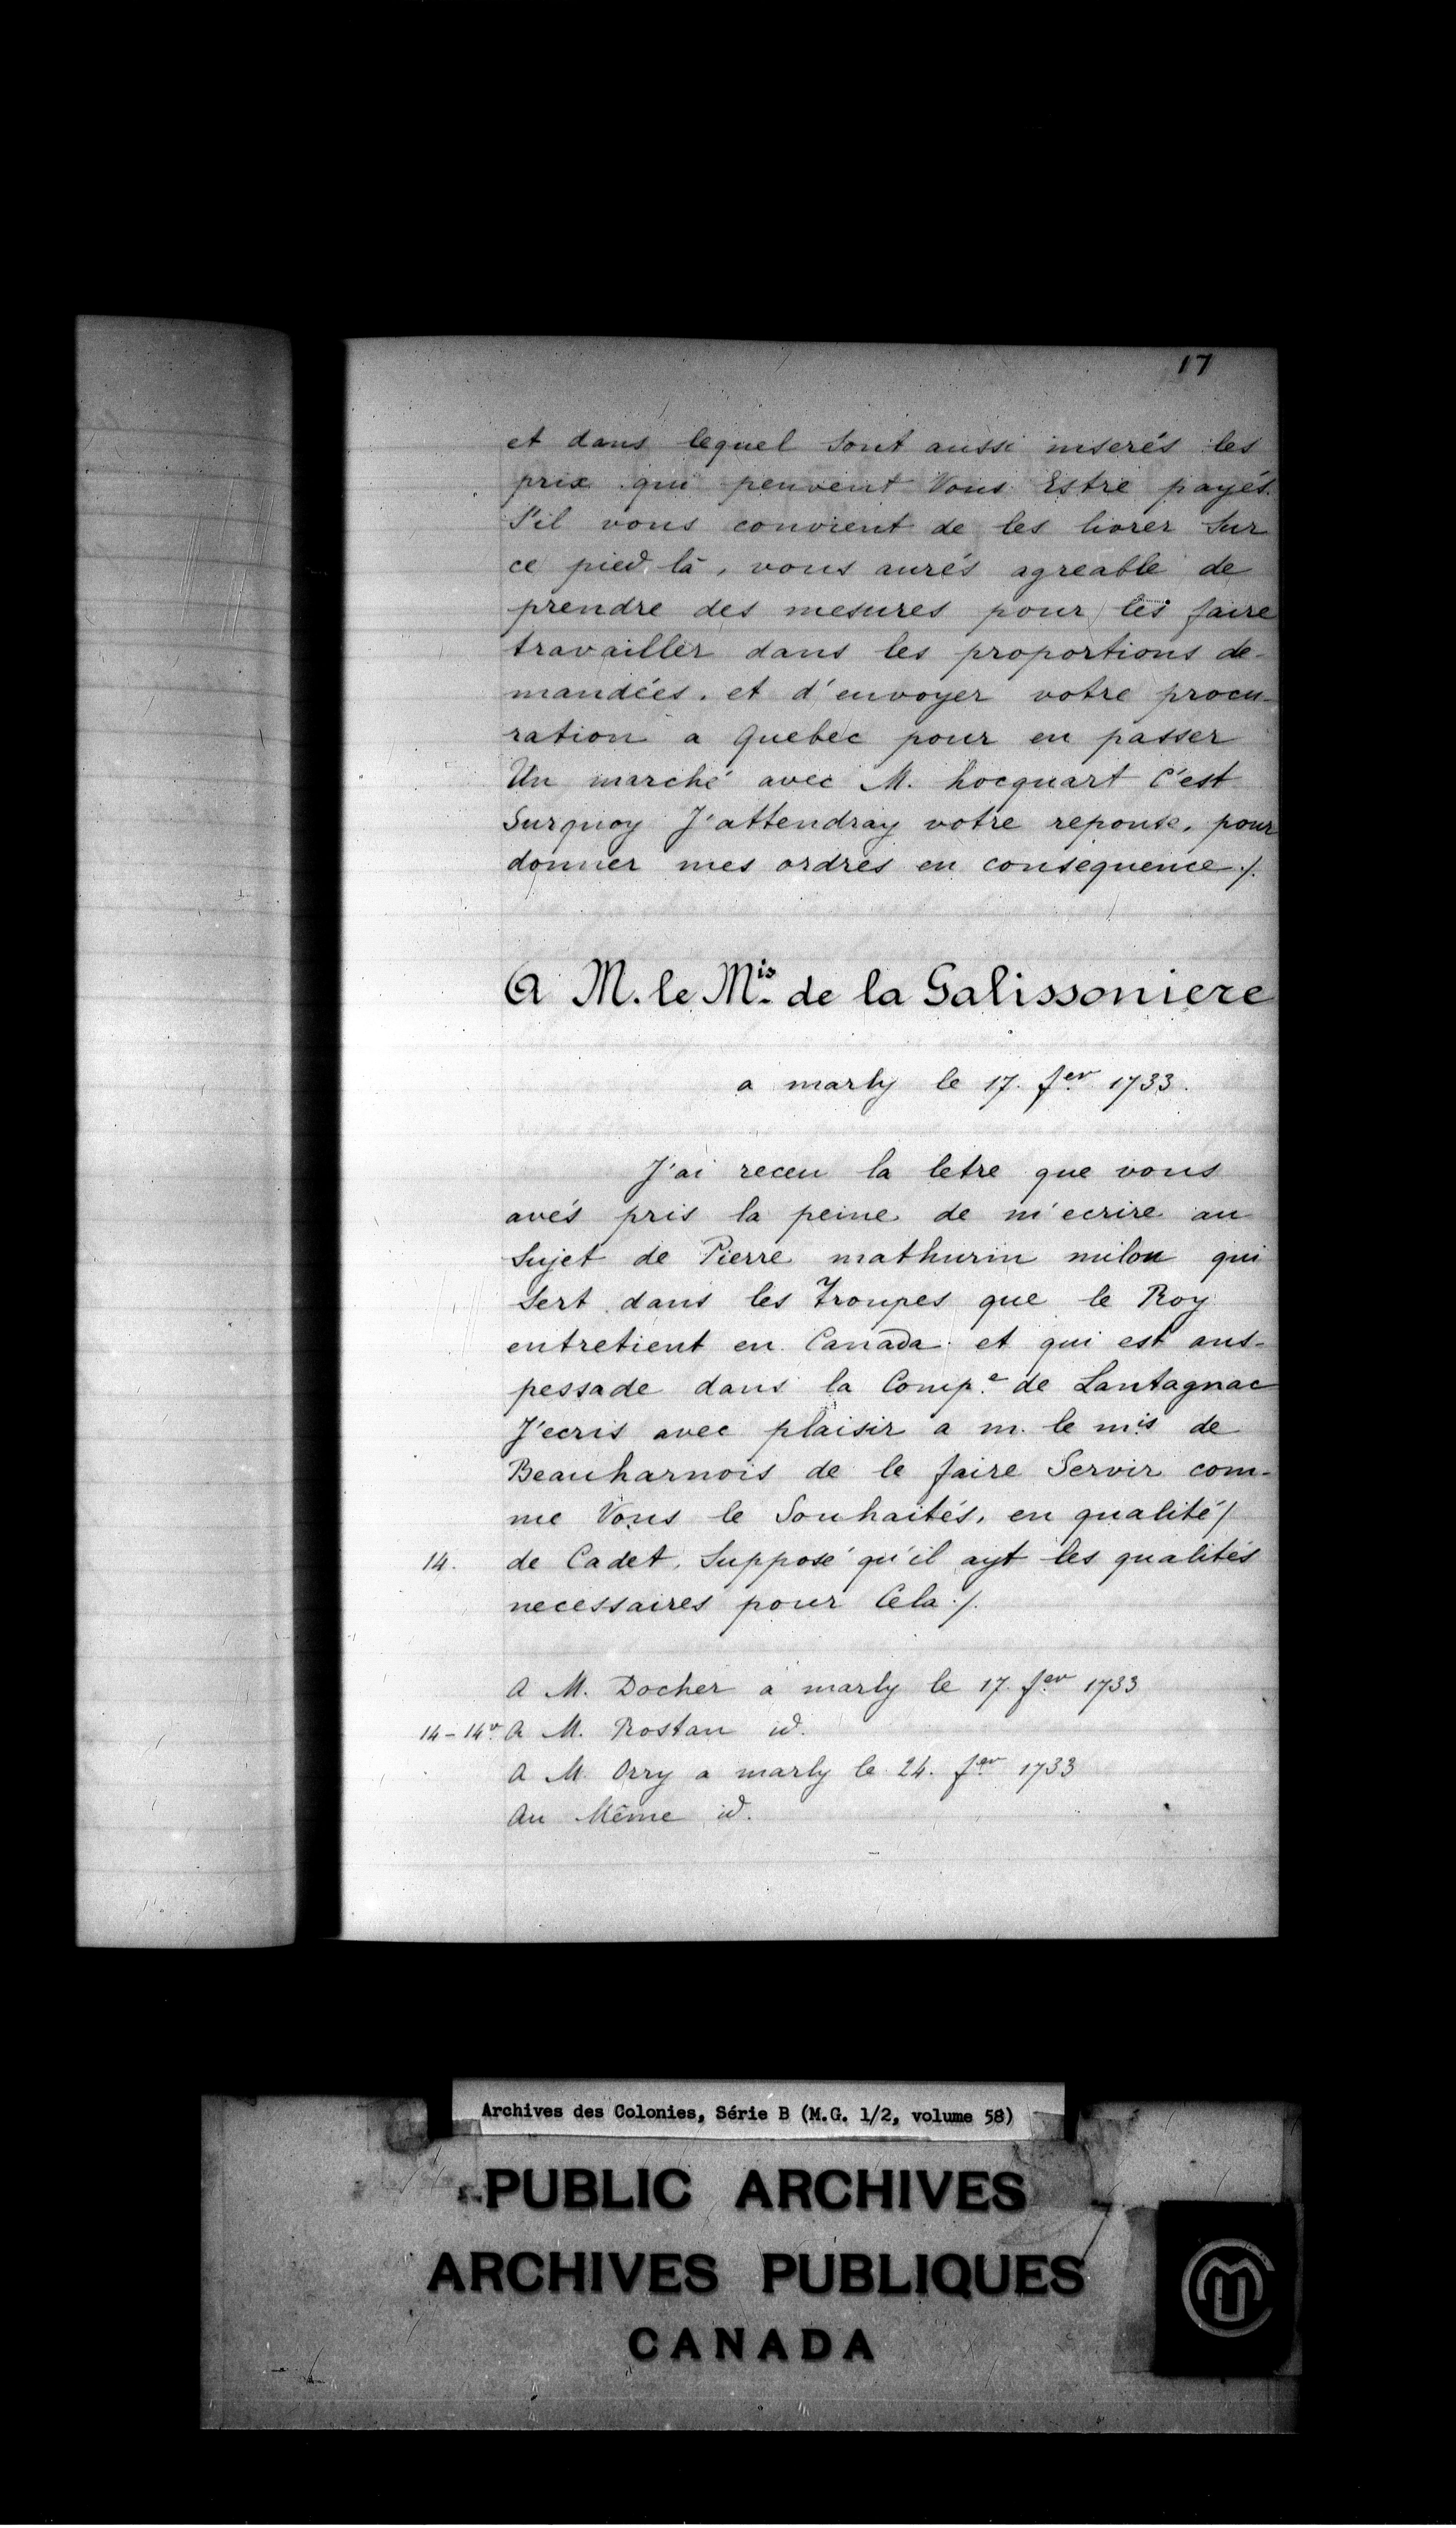 17
et dans lequel sont aussi inserés les
prix qui peuvent Vous Estre payés.
S'il vous convient de les livrer sur
ce pied là, vous aurés agreable de
prendre des mesures pour les faire
travailler dans les proportions de-
mandées. et d'envoyer votre procu-
ration a Quebec pour en passer
Un marché avec M. hocquart C'est
Surquoy J'attendray votre reponse, pour
donner mes ordres en consequence ./.
A M. le Mis. de la Galissoniere
a marly le 17. fer. 1733.
J'ai receu la letre que vous
avés pris la peine de m'ecrire au
Sujet de Pierre mathurin milon qui
Sert dans les Troupes que le Roy
entretient en Canada et qui est ans-
pessade dans la Compe. de Lantagnac
J'ecris avec plaisir a m. le mis de
Beauharnois de le faire Servir com-
me Vous le Souhaités, en qualité /
14. de Cadet, Supposé qu'il ayt les qualités
necessaires pour Cela ./.
A M. Docher a marly le 17. fer. 1733
14 - 14v. A M. Rostan id.
A M. Orry a marly le 24. fer. 1733
Au Même id.
Archives des Colonies, Série B (M.G. 1/2, volume 58)
PUBLIC ARCHIVES
ARCHIVES PUBLIQUES
CANADA